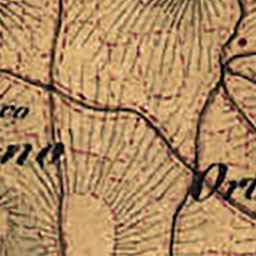 co
na
Or